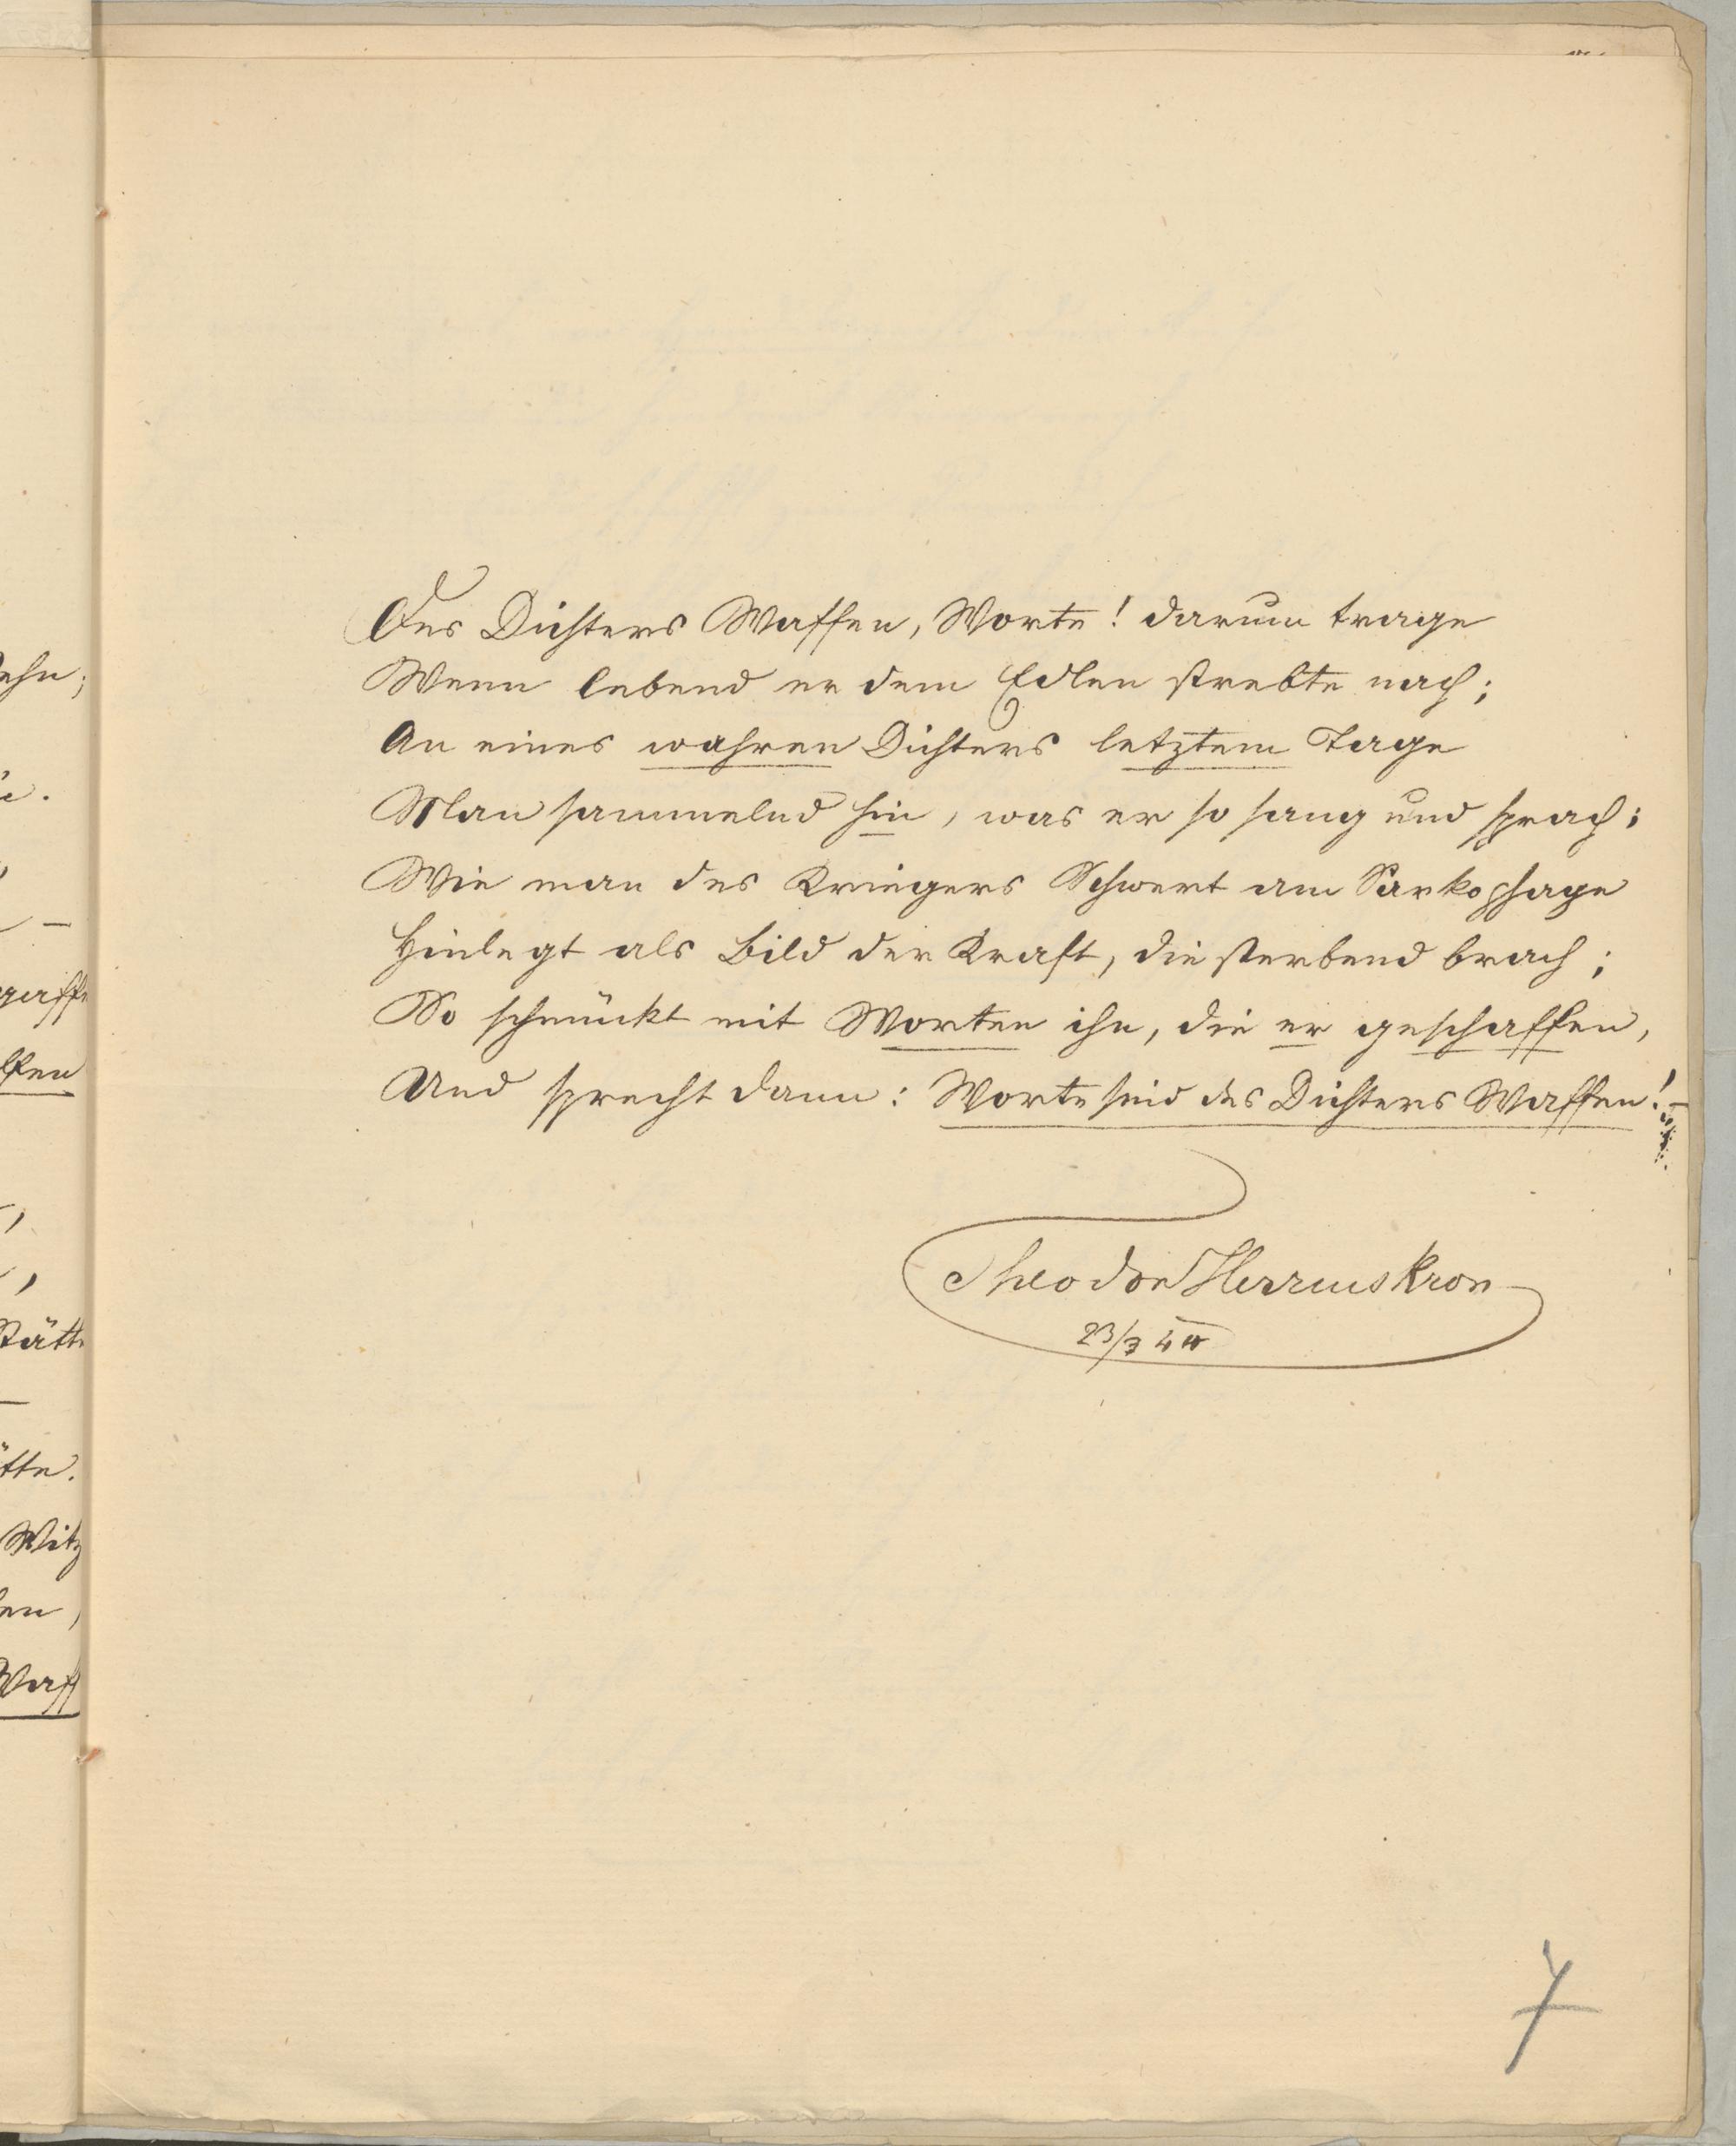 ehn;
griffe
ffen
Stätte
ätte.
Witz
en,
Waff
Des Dichters Waffen, Worte! darum trage
Wenn lebend er dem Edlen strebte nach;
An eines wahren Dichters letztem Tage
Man sammelnd hin, was er so sang und sprach;
Wie man des Kriegers Schwert am Sarkophage
Hinlegt als Bild der Kraft, die sterbend brach;
So schmückt mit Worten ihn, die er geschaffen,
Und sprecht dann: Worte sind des Dichters Waffen! –
Theodor Herrnskron
23/3
7